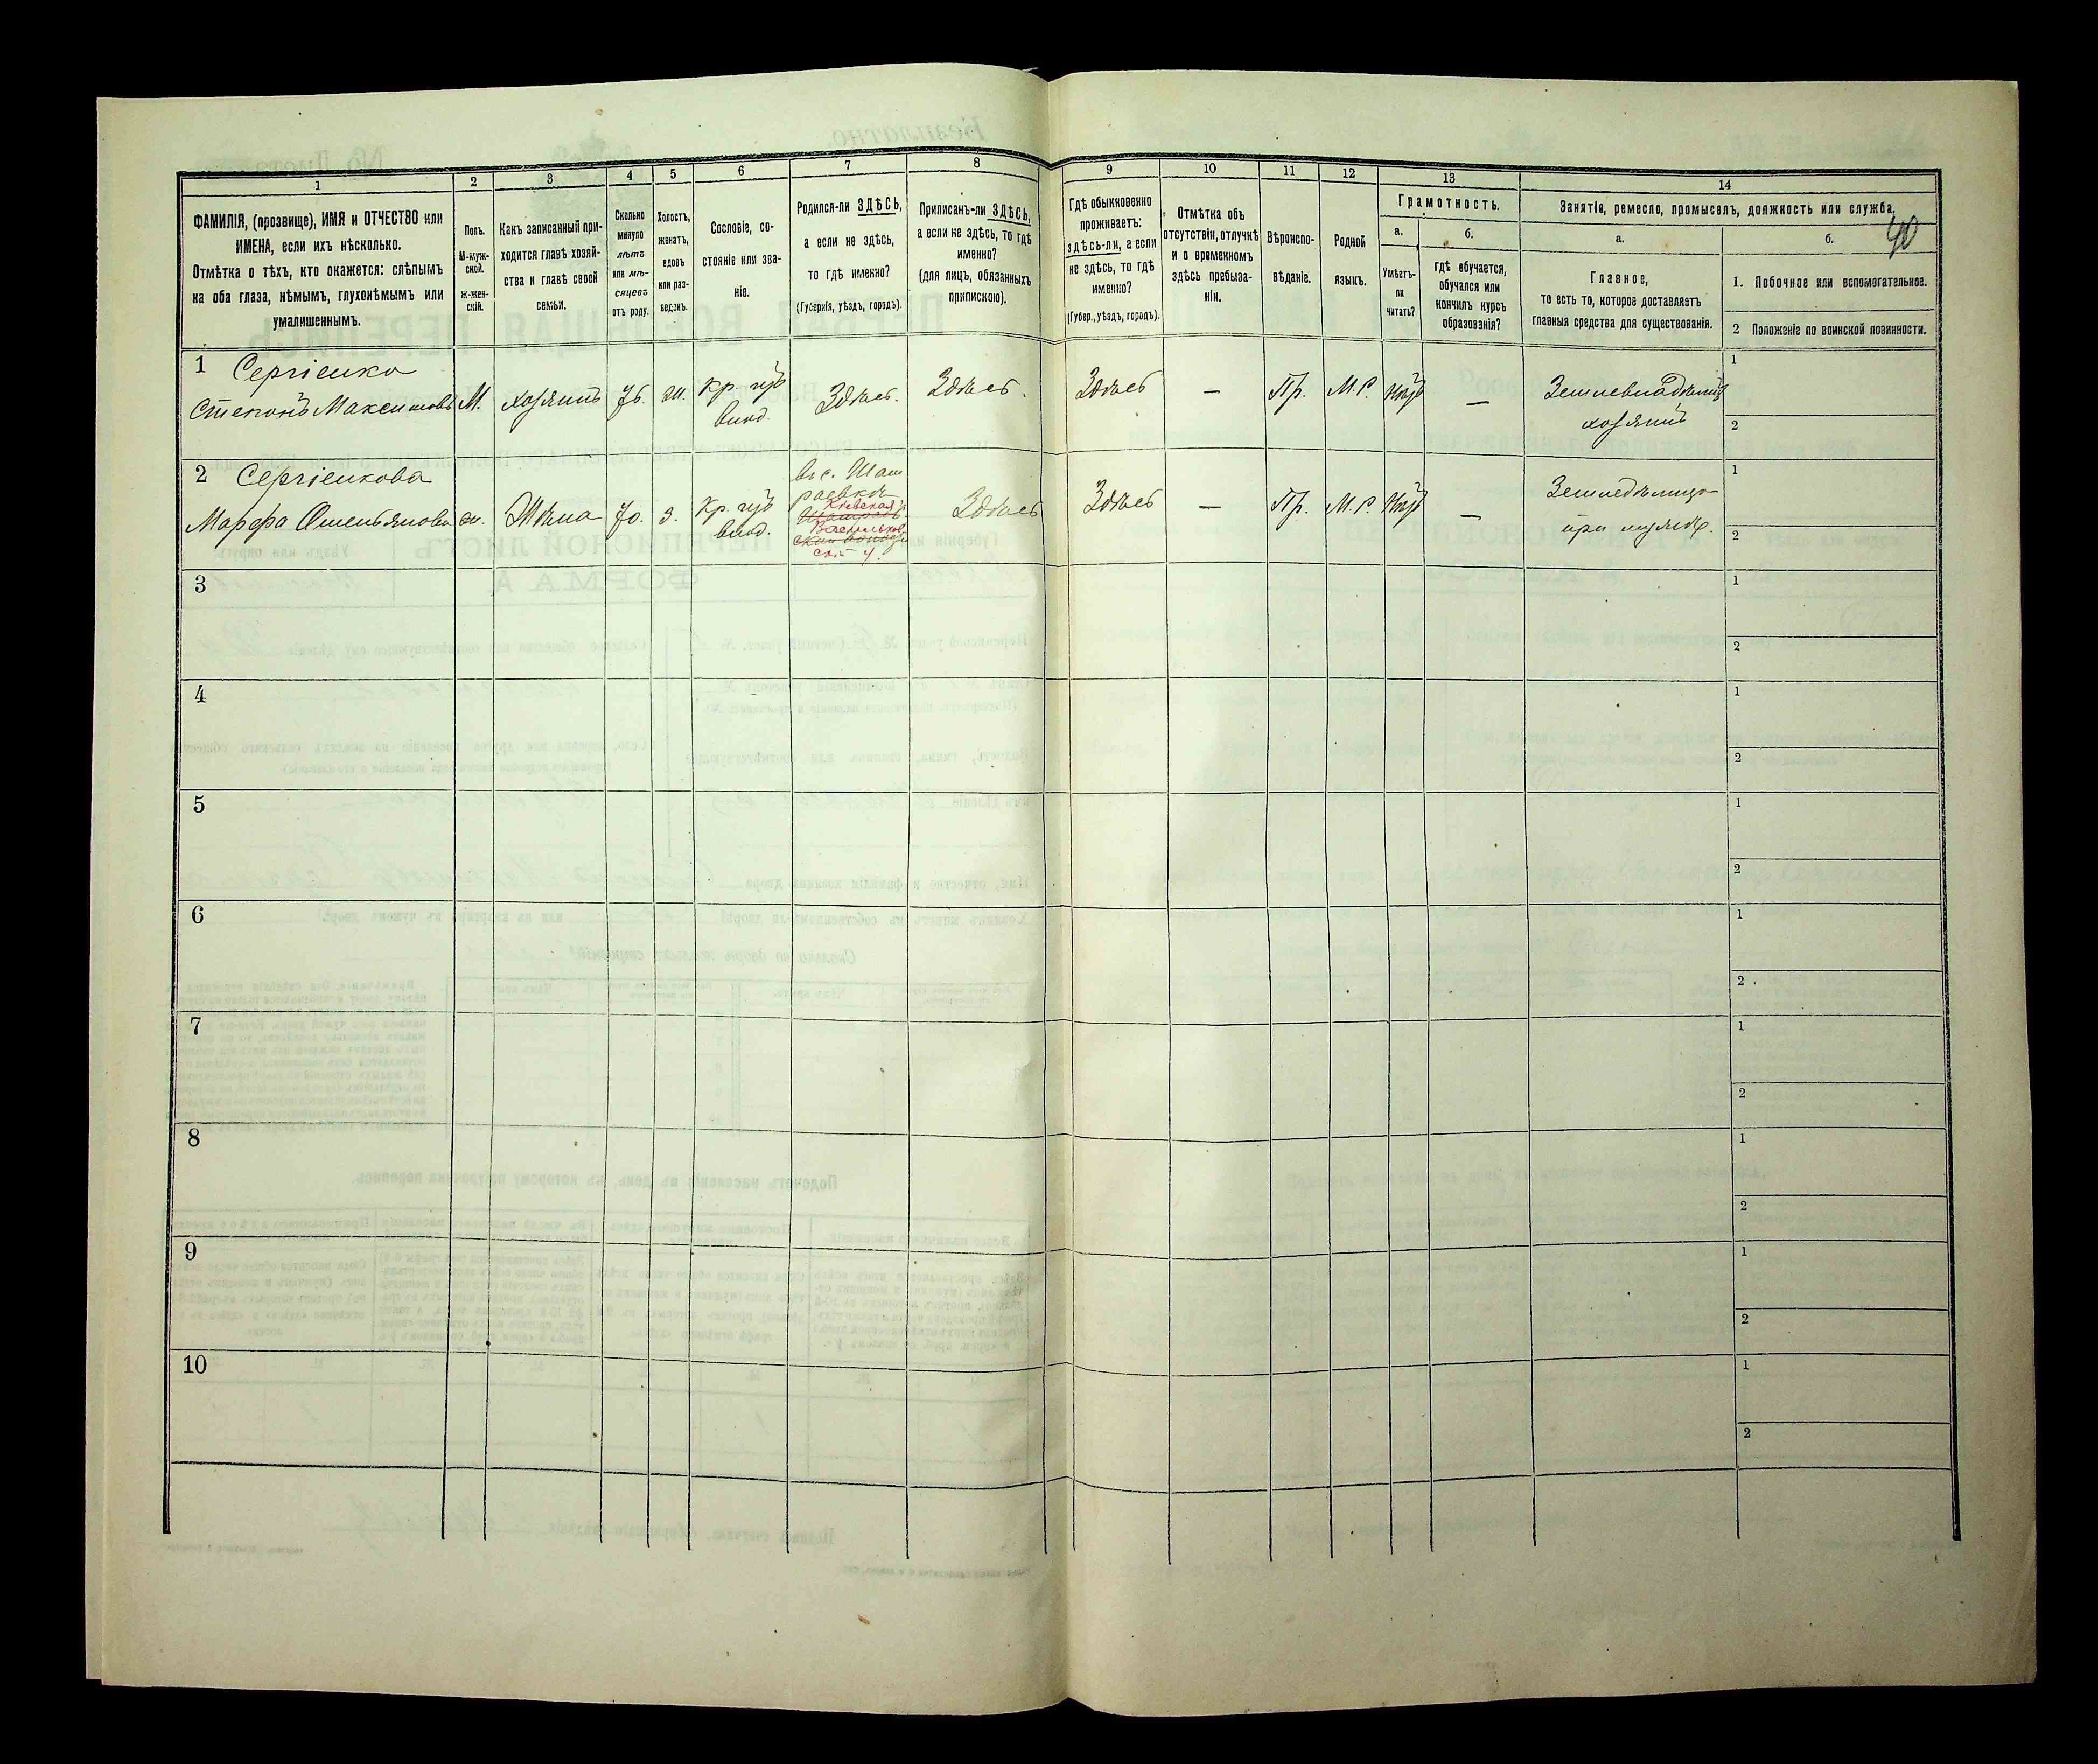 1
2
3
4
5
6
7
8
9
10
11
12
13
14
ФАМИЛІЯ, (прозвище), ИМЯ и ОТЧЕСТВО или
ИМЕНА, если ихъ нѣсколько.
Отмѣтка о тѣхъ, кто окажется: слѣпымъ
на оба глаза, нѣмымъ, глухонѣмымъ или
умалишеннымъ.
Полъ.
М-муж-
ской.
Ж-жен-
скій.
Какъ записанный при-
ходится главѣ хозяй-
ства и главѣ своей
семьи.
Сколько
минуло
лѣтъ
или мѣ-
сяцевъ
отъ роду.
Холостъ,
женатъ,
вдовъ
или раз-
веденъ.
Сословіе, со-
стояніе или зва-
ніе.
Родился-ли ЗДѢСЬ,
а если не здѣсь,
то гдѣ именно?
(Губернія, уѣздъ, городъ).
Приписанъ-ли ЗДѢСЬ,
а если не здѣсь, то гдѣ
именно?
(для лицъ, обязанныхъ
припискою).
Гдѣ обыкновенно
проживаетъ:
здѣсь-ли, а если
не здѣсь, то гдѣ
именно?
(Губер., уѣздъ, городъ).
Отмѣтка объ
отсутствіи, отлучкѣ
и о временномъ
здѣсь пребыва-
ніи.
Вѣроиспо-
вѣданіе.
Родной
языкъ.
Грамотность.
а.
Умѣетъ-
ли
читать?
б.
гдѣ обучается,
обучался или
кончилъ курсъ
образованія?
Занятіе, ремесло, промыселъ, должность или служба.
40
а.
Главное,
то есть то, которое доставляетъ
главныя средства для существованія.
б.
1. Побочное или вспомогательное.
2 Положеніе по воинской повинности.
1 Сергіенко
Степанъ Максимовъ
М.
хозяинъ
ж.
Кр. изъ
влад.
Здѣсь.
Здѣсь.
Здѣсь
—
Пр.
М.Р.
Нѣтъ
—
Земледѣлецъ
хозяинъ
1
2
2 Сергіенкова
Марфа Омельянова
ж.
Жена
70.
з.
Кр. изъ
влад.
въ с. Шам
раевкѣ
Кіевская г.
Васильков
ск. у.
Здѣсь
Здѣсь
—
Пр.
М.Р.
Нѣтъ
—
Земледѣлица
при мужѣ.
1
2
3
1
2
4
1
2
5
1
2
6
1
2
7
1
2
8
1
2
9
1
2
10
1
2